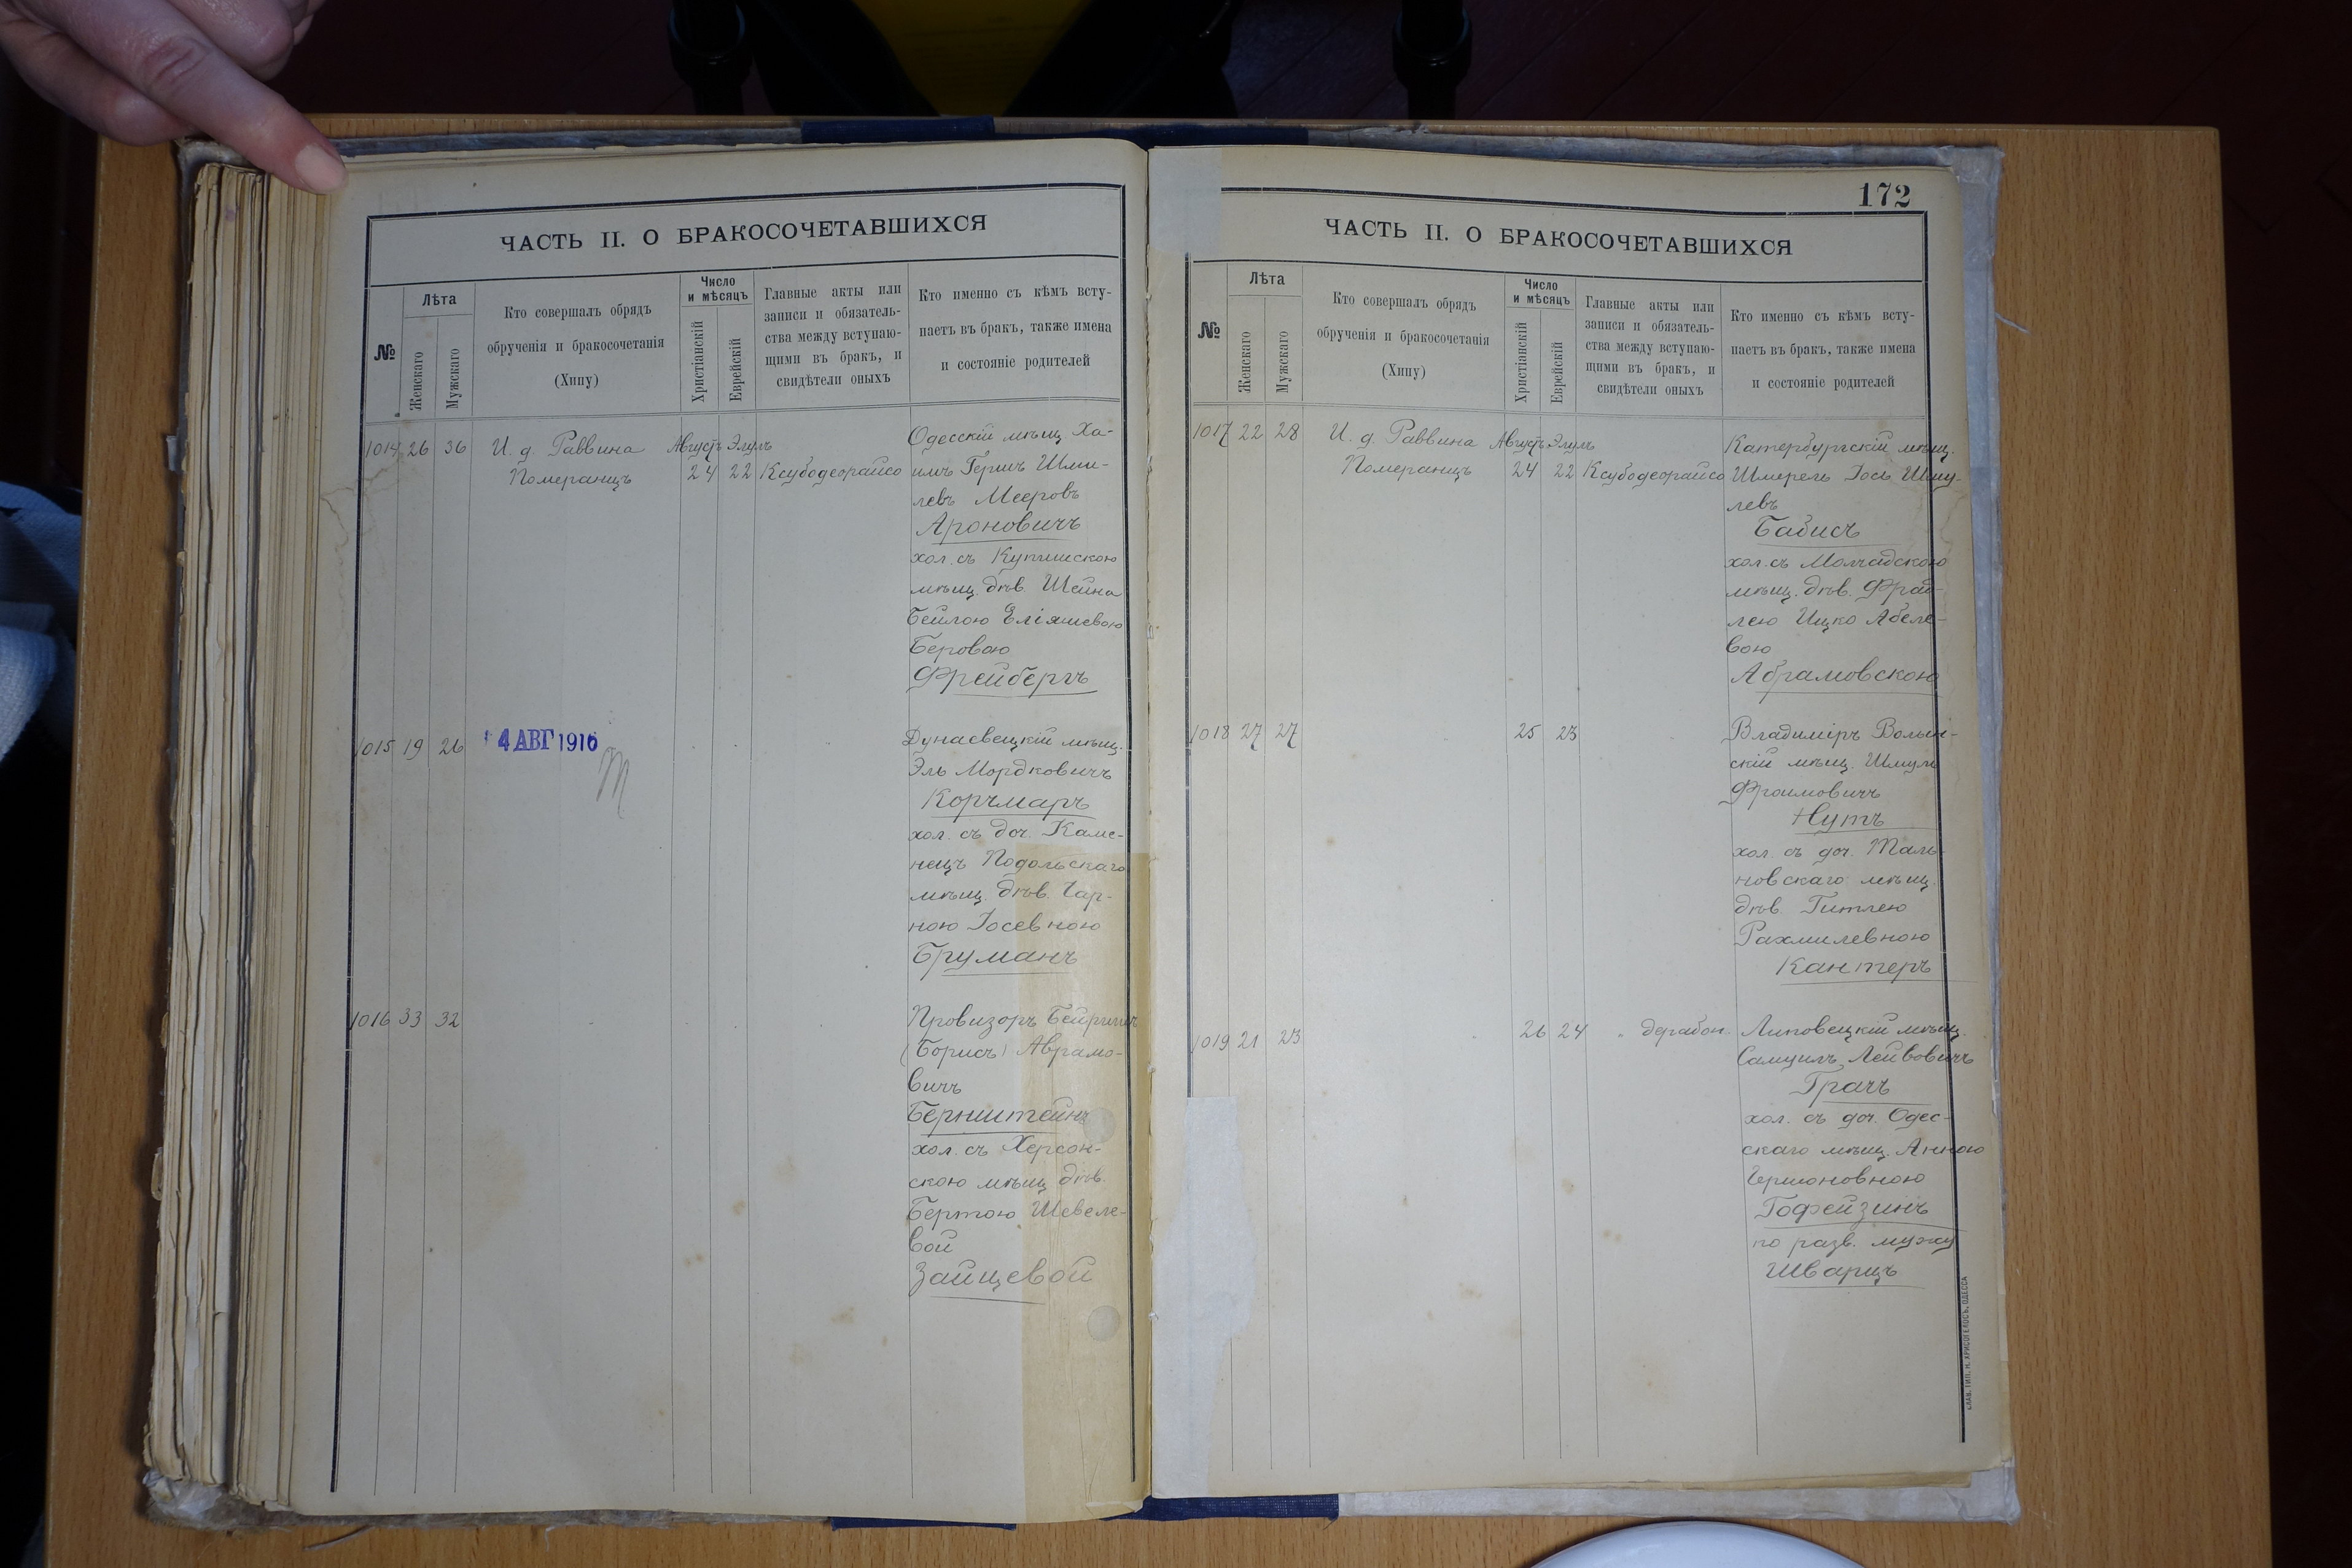 ЧАСТЬ II. О БРАКОСОЧЕТАВШИХСЯ
№
Лѣта
Женскаго
Мужскаго
Кто совершалъ обрядъ
обрученія и бракосочетанія
(Хипу)
Число
и мѣсяцъ
Христіанскій
Еврейскій
Главные акты или
записи и обязатель-
ства между вступаю-
щими въ бракъ, и
свидѣтели оныхъ
Кто именно съ кѣмъ всту-
паетъ въ бракъ, также имена
и состояніе родителей
1014 26 36 И. д. Раввина Августъ Элулъ
Померанцъ 24 22 Ксубодеорайсо
Одесскій мѣщ. Ха-
имъ Гершъ Шми-
левъ Мееровъ
Ароновичъ
хол. съ Купишскою
мѣщ. дѣв. Шейна
Бейлою Еліяшевою
Беровою
Фрейбергъ
1015 19 26
4 АВГ 1916
Дунаевецкій мѣщ.
Эль Мордковичъ
Корчмаръ
хол. съ доч. Каме-
нецъ Подольскаго
мѣщ. дѣв. Чар-
ною Іосевною
Бруманъ
1016 33 32
Провизоръ Бейришъ
(Борисъ) Аврамо-
вичъ
Бернштейнъ
хол. съ Херсон-
скою мѣщ. дѣв.
Бертою Шевеле-
вой
Зайцевой
172
ЧАСТЬ II. О БРАКОСОЧЕТАВШИХСЯ
№
Лѣта
Женскаго
Мужскаго
Кто совершалъ обрядъ
обрученія и бракосочетанія
(Хипу)
Число
и мѣсяцъ
Христіанскій
Еврейскій
Главные акты или
записи и обязатель-
ства между вступаю-
щими въ бракъ, и
свидѣтели оныхъ
Кто именно съ кѣмъ всту-
паетъ въ бракъ, также имена
и состояніе родителей
1017 22 28 И. д. Раввина Августъ Элулъ
Померанцъ 24 22 Ксубодеорайсо
Катербургскій мѣщ.
Шмерель Іось Шму-
левъ
Бабисъ
хол. съ Молчадскою
мѣщ. дѣв. Фрад-
лею Ицко Абеле-
вою
Абрамовскою
1018 27 27 25 23
Владиміръ Волын-
скій мѣщ. Шмуль
Фроимовичъ
Нутъ
хол. съ доч. Таль-
новскаго мѣщ.
дѣв. Гитлею
Рахмилевною
Кантеръ
1019 21 23 26 24 " дерабон.
Липовецкій мѣщ.
Самуилъ Лейбовичъ
Грачъ
хол. съ доч. Одес-
скаго мѣщ. Анною
Гершоновною
Гофейзинъ
по разв. мужу
Шварцъ
СЛАВ. ТИП. Н. ХРИСОГЕЛОСЪ, ОДЕССА